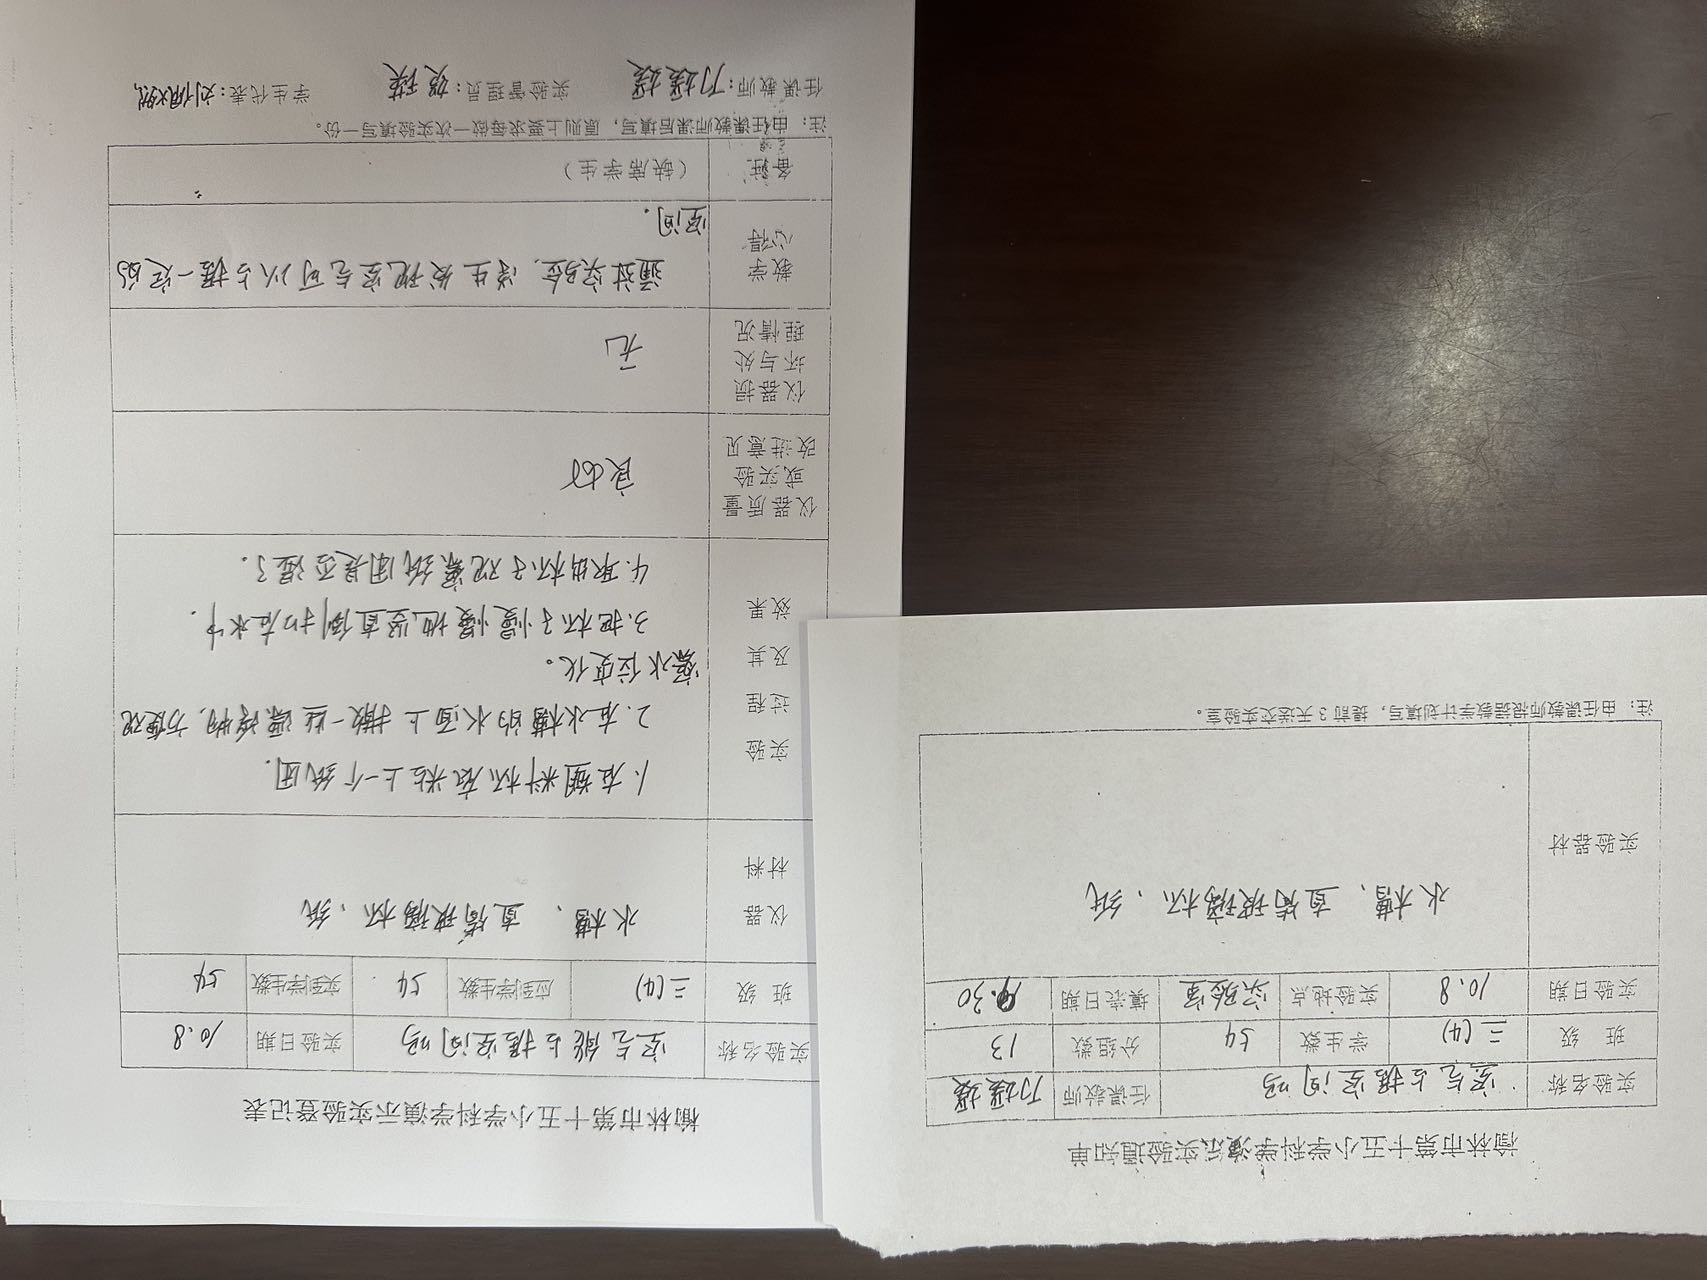 榆林市第十五小学科学演示实验通知单
实验名称 空气占据空间吗 任课教师
班 级 三(4) 学生数 54 分组数 13
实验日期 10.8 实验地点 实验室 填表日期 9.30
实验器材 水槽、直筒玻璃杯、纸
注:由任课教师根据教学计划填写,提前3天送交实验室。
榆林市第十五小学科学演示实验登记表
实验名称 空气能占据空间吗 实验日期 10.8
班 级 三(4) 应到学生数 54 实到学生数 54
仪器
材料
水槽、直筒玻璃杯、纸
实验
过程
及其
效果
1.在塑料杯底粘上一个纸团.
2.在水槽的水面上撒一些漂浮物,方便观
察水位变化。
3.把杯子慢慢地竖直倒扣在水中.
4.取出杯子观察纸团是否湿了.
仪器质量
或实验
改进意见
良好
仪器损
坏与处
理情况
无
教学
心得
通过实验,学生发现空气可以占据一定的
空间.
备注 (缺席学生)
注:由任课教师课后填写,原则上要求每做一次实验填写一份。
任课教师: 实验管理员:贺瑛 学生代表: